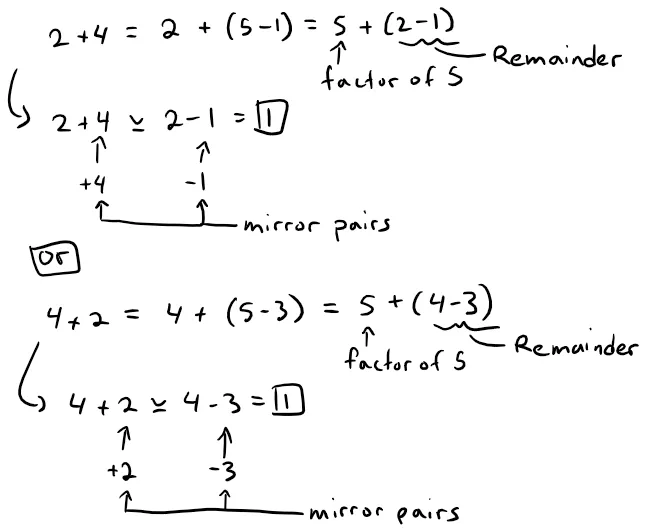 2+4 = 2 + (5-1) = 5 + (2-1)
Remainder
factor of 5
2+4 ⩭ 2-1 = 1
+4 -1
mirror pairs
or
4+2 = 4 + (5-3) = 5 + (4-3)
Remainder
factor of 5
4+2 ⩭ 4-3 = 1
+2 -3
mirror pairs